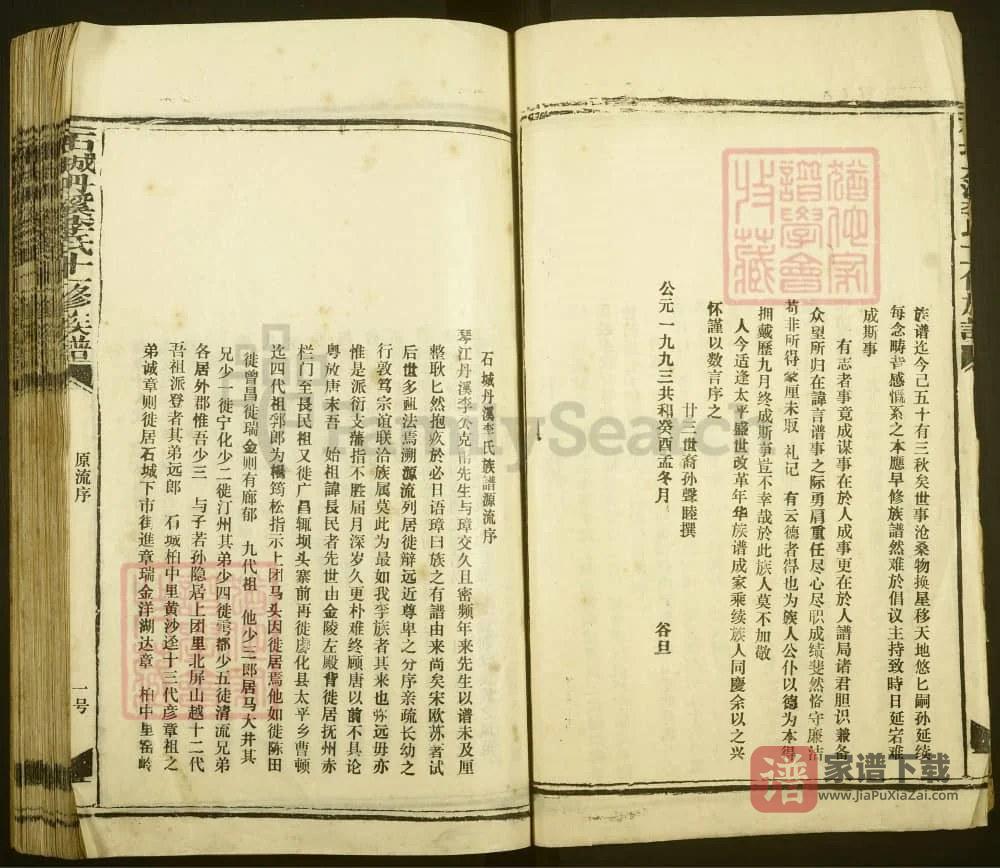 族谱迄今己五十有三秋矣世事沧桑物换星移天地悠匕嗣孙延续
每念畴昔感慨系之本應早修族譜然难於倡议主持致時日延宕难
成斯事
有志者事竟成谋事在於人成事更在於人譜局诸君胆识兼备
众望所归在諱言谱事之际勇肩重任尽心尽职成绩斐然恪守廉洁
苟非所得毫厘未取 礼记 有云德者得也为族人公仆以德为本得
拥戴歷九月终成斯事岂不幸哉於此族人莫不加敬
人今适逢太平盛世改革年华族谱成家乘续族人同慶余以之兴
怀謹以数言序之
廿三世裔孙聲睦撰
公元一九九三共和癸酉孟冬月 谷旦
猶他家譜學會收藏
石城丹溪李氏族譜源流序
琴江丹溪李公克 先生与璋交久且密频年来先生以谱未及厘
整耿匕然抱疚於必日语璋曰族之有譜由来尚矣宋欧苏者试
后世多祖法焉溯源流列居徙辩远近尊卑之分序亲疏长幼之
行敦笃宗谊联洽族属莫此为最如我李族者其来也弥远毋亦
惟是派衍支蕃指不胜届月深岁久更朴难终顾唐以前不具论
粤放唐末吾 始祖諱長民者先世由金陵左殿背徙居抚州赤
栏门至長民祖又徙广昌辄坝头寨前再徙虔化县太平乡曹顿
迄四代祖郭郎为楊筠松指示上团马头因徙居焉他如徙陈田
徙曾昌徙瑞金则有廊郁 九代祖 他少三郎居马大井其
兄少一徙宁化少二徙汀州其弟少四徙雩都少五徒清流兄弟
各居外郡惟吾少三 与子若孙隐居上团里北屏山越十二代
吾祖派登者其弟远郎 石城柏中里黄沙迳十三代彦章祖之
弟诚章则徙居石城下市街進章瑞金洋湖达章 柏中里窑岭
石城丹溪李氏十一修族譜
原流序
一号
FamilySearch
譜
家谱下载
www.JiaPuXiaZai.com